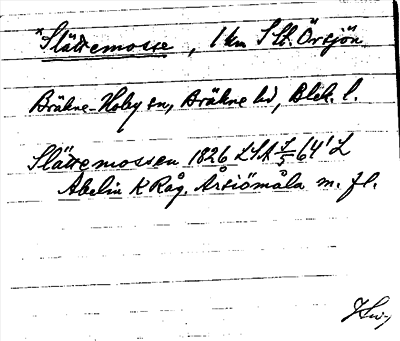 *Slättemosse, 1 km S lt. Örsjön
Bräkne-Hoby sn, Bräkne hd, Blek. l.
Slättemossen 1826 LSA 64' L
Abelin K Råg. Årsiömåla m. fl.